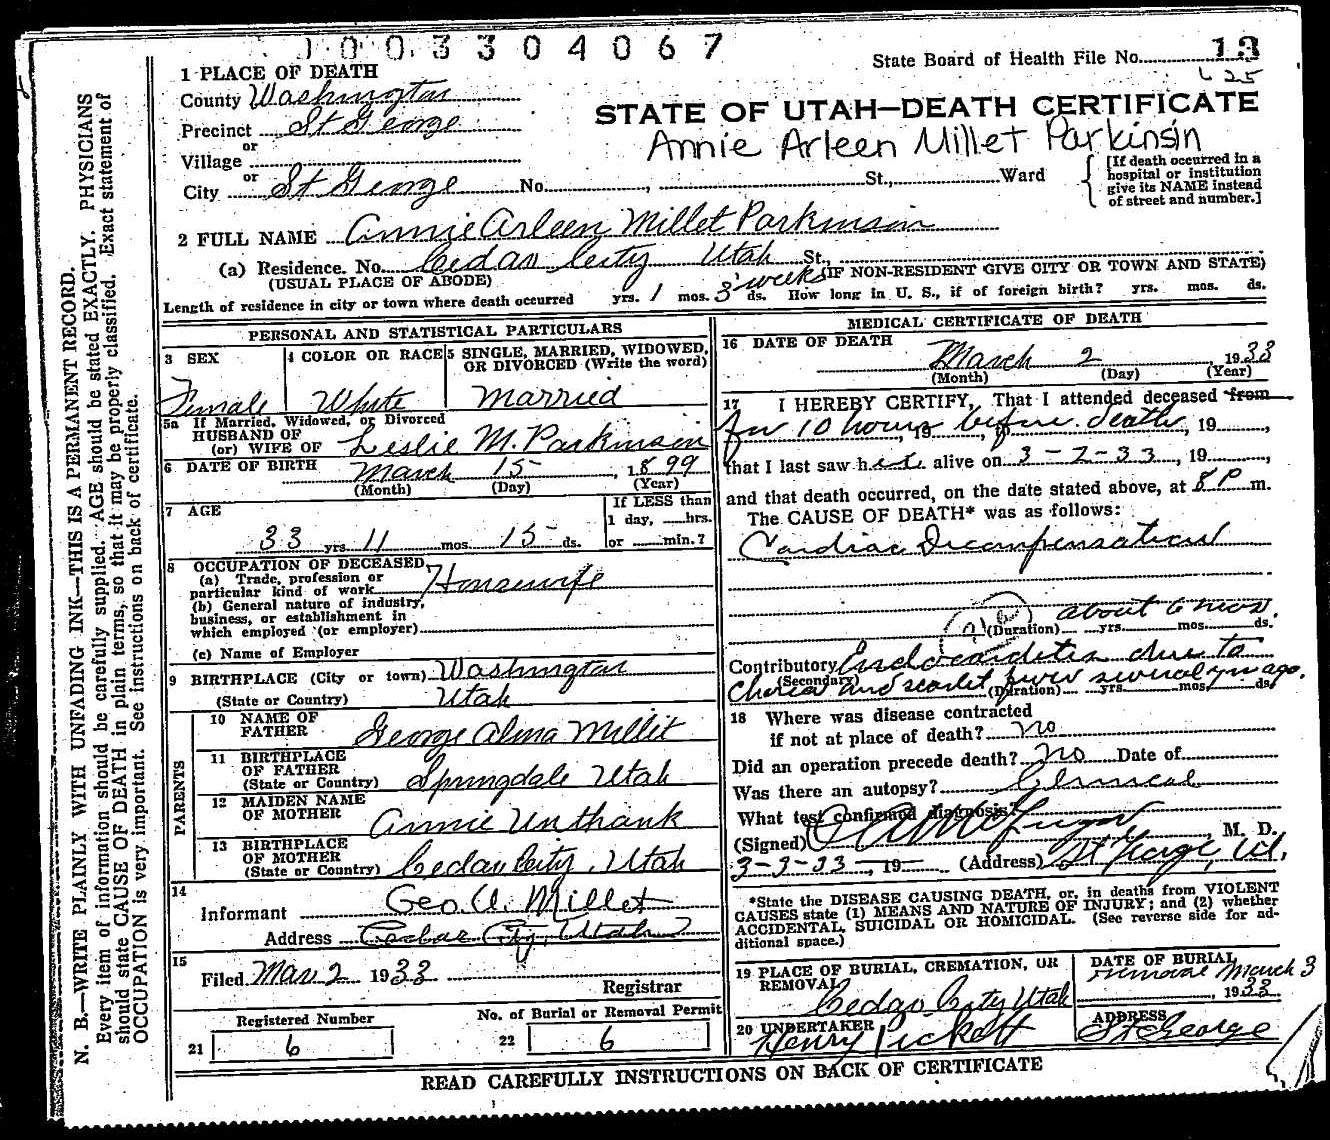 1003304067
State Board of Health File No. 13
625
1 PLACE OF DEATH
County Washington
STATE OF UTAH—DEATH CERTIFICATE
Precinct St George
Annie Arleen Millet Parkinsin
or
Village
or
City St George No. , St., Ward
[If death occurred in a hospital or institution give its NAME instead of street and number.]
2 FULL NAME Annie Arleen Millet Parkinson
(a) Residence. No. Cedar City Utah St.,
(USUAL PLACE OF ABODE)
(IF NON-RESIDENT GIVE CITY OR TOWN AND STATE)
Length of residence in city or town where death occurred yrs. 1 mos. 3 weeks ds. How long in U. S., if of foreign birth? yrs. mos. ds.
PERSONAL AND STATISTICAL PARTICULARS
3 SEX
Female
4 COLOR OR RACE
White
5 SINGLE, MARRIED, WIDOWED, OR DIVORCED (Write the word)
Married
5a If Married, Widowed, or Divorced
HUSBAND OF
(or) WIFE OF Leslie M. Parkinson
6 DATE OF BIRTH March 15 , 1899
(Month) (Day) (Year)
7 AGE
33 yrs. 11 mos. 15 ds.
If LESS than
1 day, hrs.
or min.?
8 OCCUPATION OF DECEASED,
(a) Trade, profession or
particular kind of work Housewife
(b) General nature of industry,
business, or establishment in
which employed (or employer)
(c) Name of Employer
9 BIRTHPLACE (City or town) Washington
(State or Country) Utah
PARENTS
10 NAME OF
FATHER George Alma Millet
11 BIRTHPLACE
OF FATHER
(State or Country) Springdale Utah
12 MAIDEN NAME
OF MOTHER Annie Unthank
13 BIRTHPLACE
OF MOTHER
(State or Country) Cedar City, Utah
14
Informant Geo. A. Millet
Address Cedar City, Utah
15
Filed Mar 2 1933
Registrar
Registered Number
21 6
No. of Burial or Removal Permit
22 6
MEDICAL CERTIFICATE OF DEATH
16 DATE OF DEATH
March 2 , 1933
(Month) (Day) (Year)
17 I HEREBY CERTIFY, That I attended deceased from
for 10 hours, 19 before death, 19 ,
that I last saw her alive on 3-2-33, 19 ,
and that death occurred, on the date stated above, at 8 P m.
The CAUSE OF DEATH* was as follows:
Cardiac Decompensation
about 6 mos.
(Duration) yrs. mos. ds.
Contributory Endocarditis due to
(Secondary)
Chorea and scarlet fever several yrs ago.
(Duration) yrs. mos. ds.
18 Where was disease contracted
if not at place of death? no
Did an operation precede death? no Date of
Was there an autopsy?
Clinical
What test confirmed diagnosis?
(Signed) , M. D.
3-3-33, 19 (Address) St George, Ut.
*State the DISEASE CAUSING DEATH, or, in deaths from VIOLENT
CAUSES state (1) MEANS AND NATURE OF INJURY; and (2) whether
ACCIDENTAL, SUICIDAL OR HOMICIDAL. (See reverse side for ad-
ditional space.)
19 PLACE OF BURIAL, CREMATION, OR
REMOVAL
Cedar City Utah
DATE OF BURIAL
removal March 3
, 1933
20 UNDERTAKER
Henry Pickett
ADDRESS
St George
READ CAREFULLY INSTRUCTIONS ON BACK OF CERTIFICATE
N. B.—WRITE PLAINLY WITH UNFADING INK—THIS IS A PERMANENT RECORD.
Every item of information should be carefully supplied. AGE should be stated EXACTLY. PHYSICIANS
should state CAUSE OF DEATH in plain terms, so that it may be properly classified. Exact statement of
OCCUPATION is very important. See instructions on back of certificate.